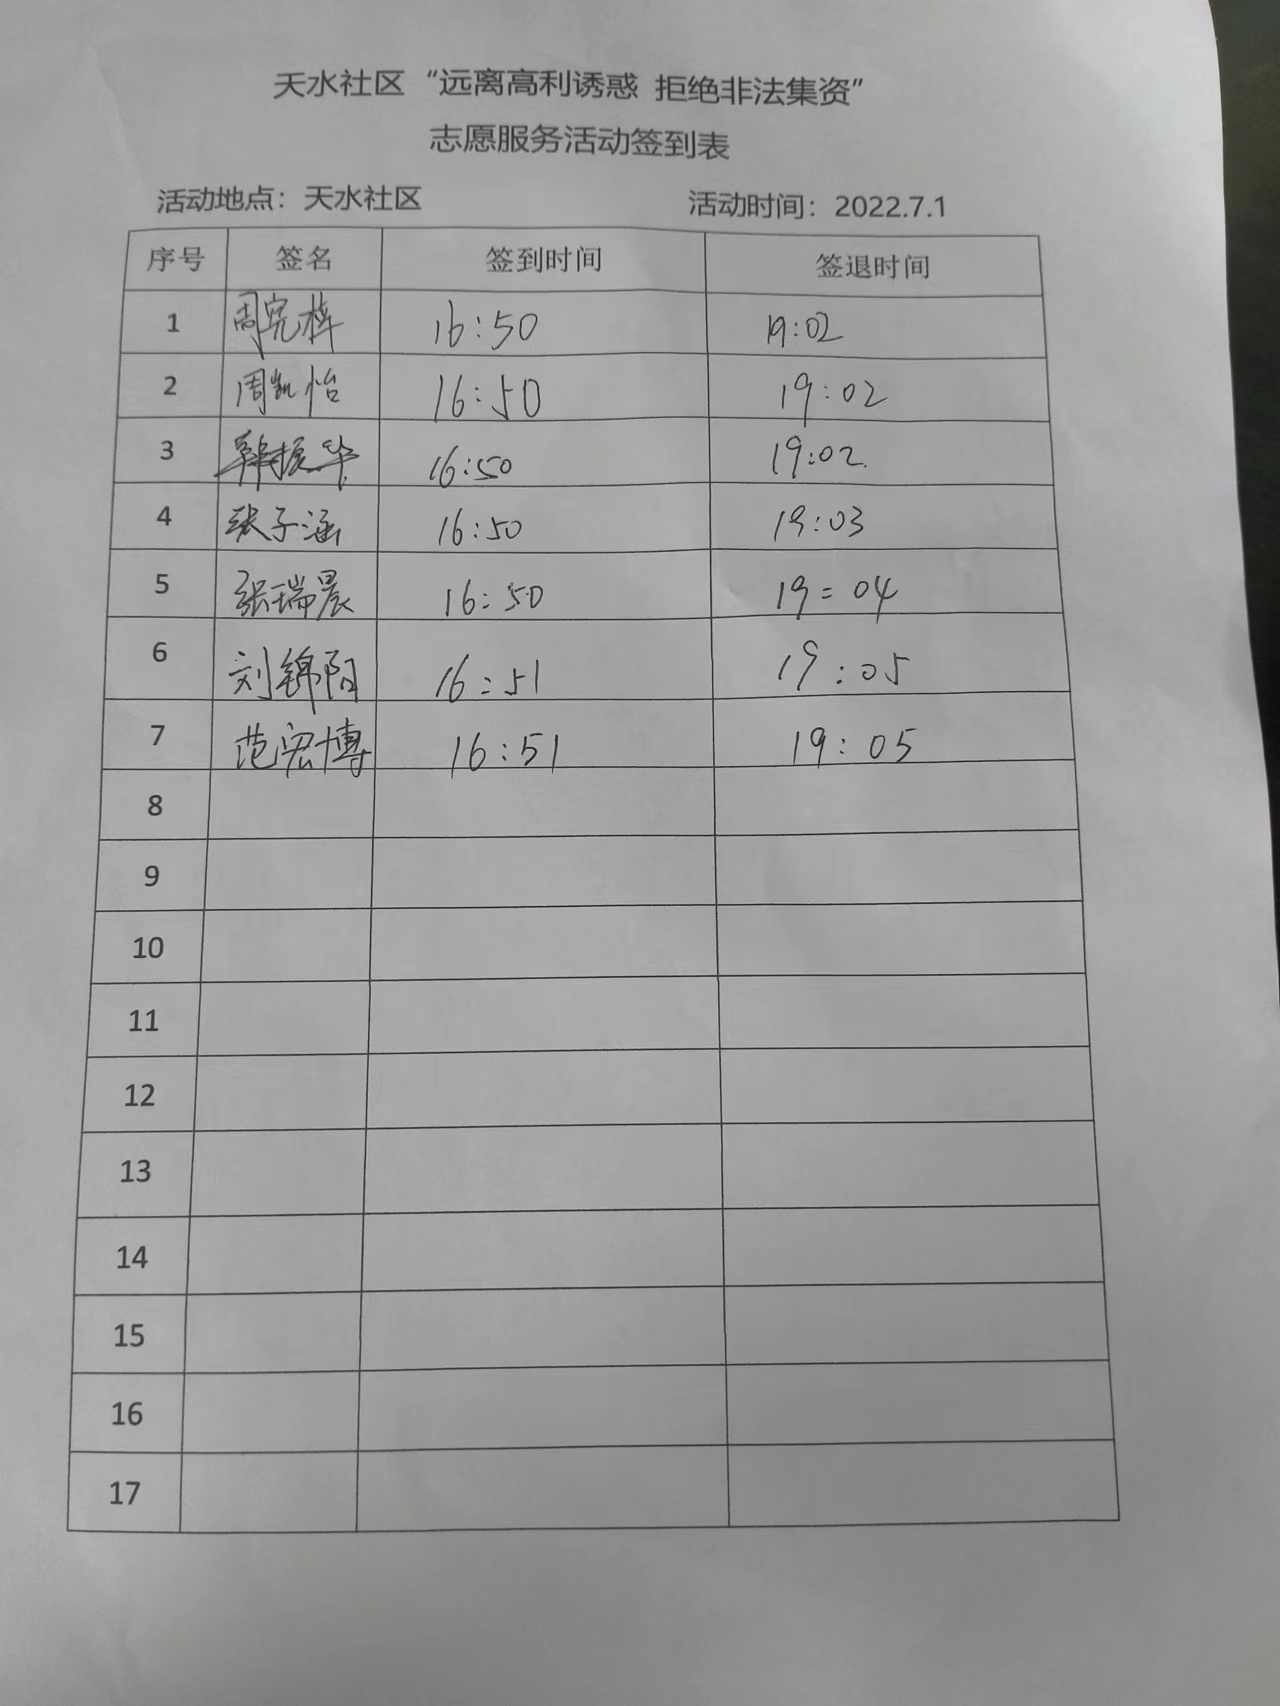 天水社区“远离高利诱惑 拒绝非法集资”
志愿服务活动签到表
活动地点：天水社区 活动时间：2022.7.1
序号 签名 签到时间 签退时间
1 周完梓 16:50 19:02
2 周凯怡 16:50 19:02
3 韩振华 16:50 19:02
4 张子涵 16:50 19:03
5 张瑞晨 16:50 19:04
6 刘锦阳 16:51 19:05
7 范宏博 16:51 19:05
8
9
10
11
12
13
14
15
16
17